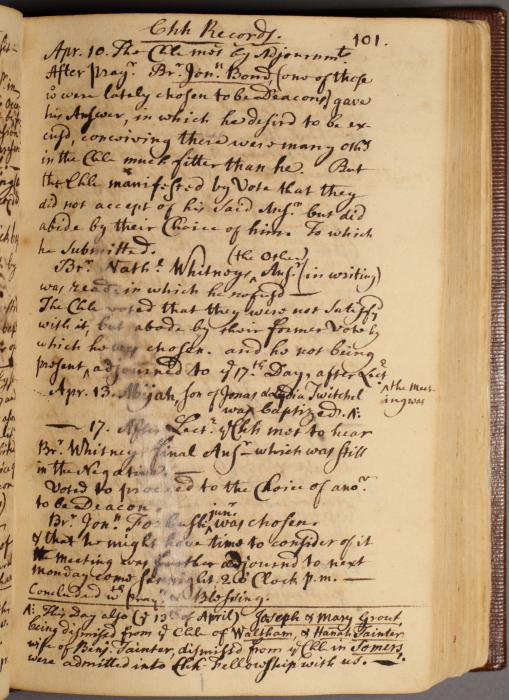 Chh Records.
101.
Apr. 10. The Chh met by Adjournmt.
After prayr. Br. Jonn. Bond (one of those
w were lately chosen to be Deacons) gave
his Answer, in which he desird to be ex-
cusd, conceiving there were many Othrs
in the Chh much fitter than he. But
the Chh manifested by Vote that they
did not accept of his said Ansr. but did
abide by their Choice of him. To which
he submitted.
Br. Nathl. Whitneys (the Other) Ansr. (in writing)
was read in which he refusd —
The Chh voted that they were not satisfy
with it, but abode by their former Vote by
which he was chosen. and he not being
present, adjourned to ye 17th. Day, after Lectr.
^ the meet
ing was
Apr. 13. Abijah, son of Jonas & Lydia Twitchel
was baptized. A:
— 17. After Lectr. ye Chh met to hear
Br. Whitneys final Ansr — which was still
in the Negative. —
Voted to proceed to the Choice of anor.
to be Deacon.
Br. Jonn. Forbush junr. was chosen.
& that he might have time to consider of it
the meeting was further adjournd to next
monday come fortnight 2 o Clock p.m. —
Concluded wth prayr & Blessing.
A: This day also (ye 13th of April) Joseph & Mary Grout,
being dismised from ye Chh of Waltham, & Hannah Tainter
wife of Benj. Tainter, dismised from ye Chh in Somers,
were admitted into Chh Fellowship with us. —